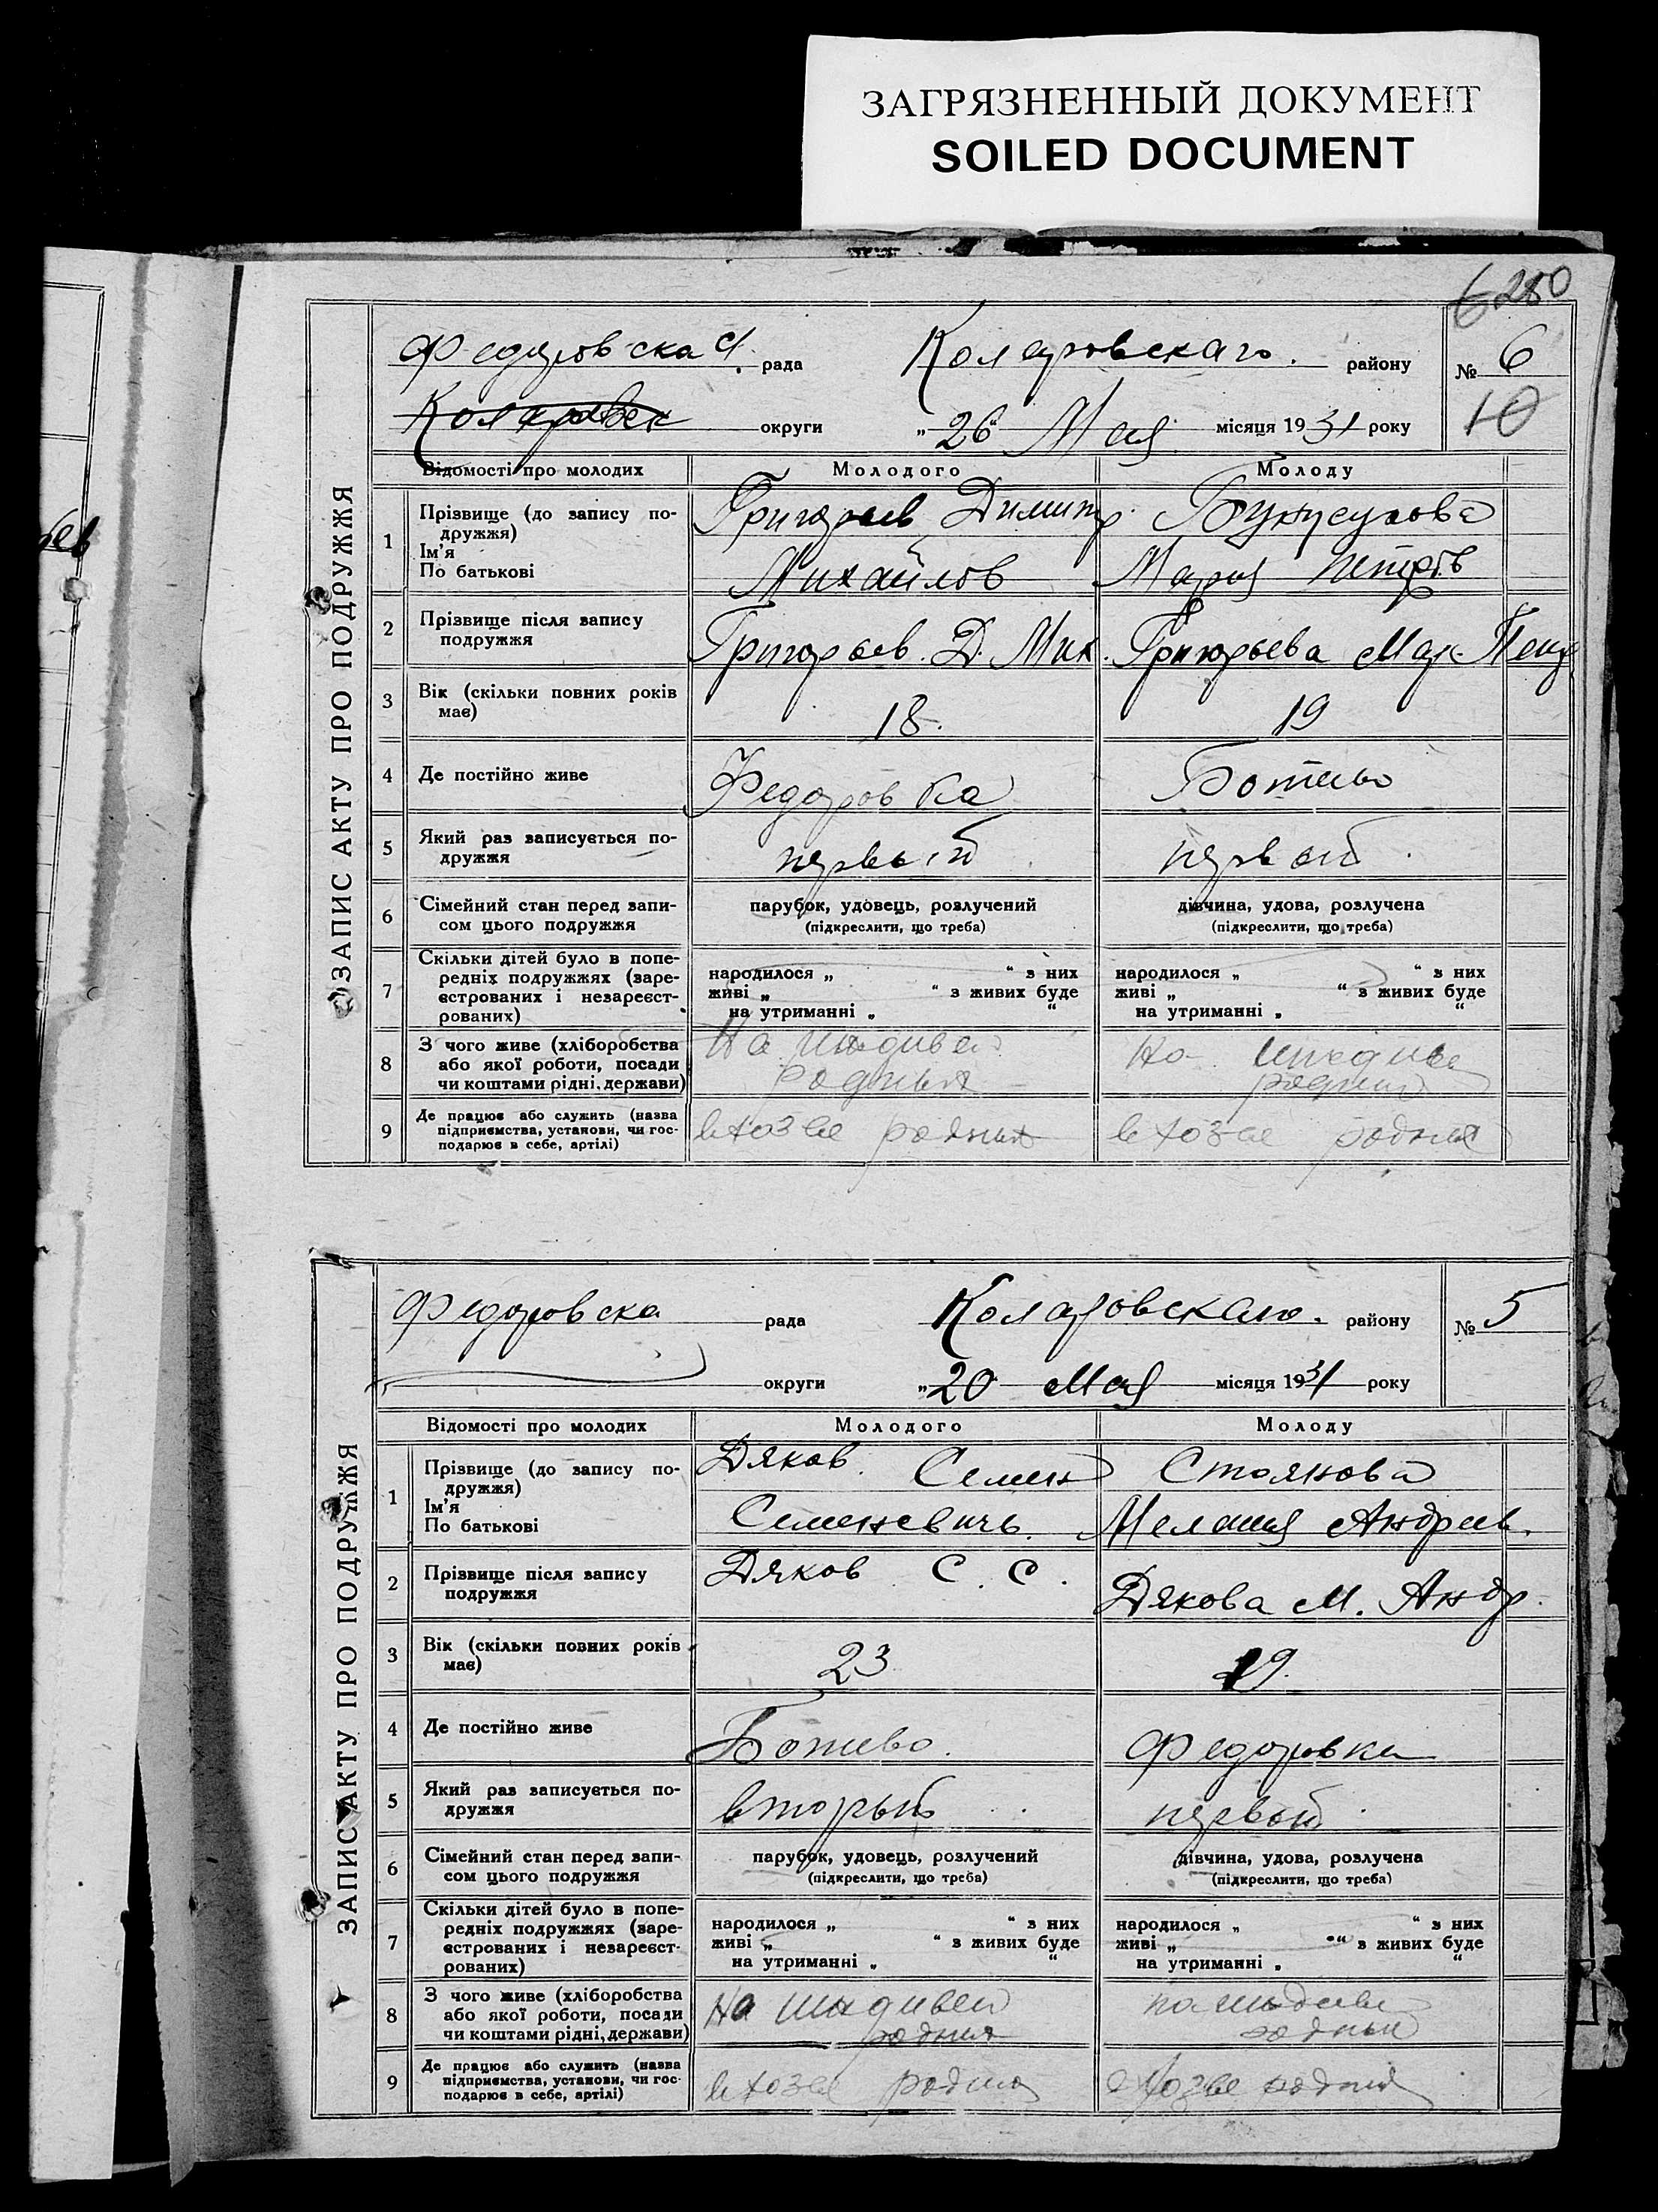 ЗАГРЯЗНЕННЫЙ ДОКУМЕНТ
SOILED DOCUMENT
6280
ЗАПИС АКТУ ПРО ПОДРУЖЖЯ
Федоровска рада Коларовскаго. району № 6
округи „26“ Мая місяця 1931 року 10
Відомості про молодих Молодого Молоду
1 Прізвище (до запису по-
дружжя)
Ім'я
По батькові
Григорьев Димитр
Михайлов
Мария Петров
2 Прізвище після запису
подружжя
Григорьев. Д. Мих. Григорьева Мар.
3 Вік (скільки повних років
має)
18. 19
4 Де постійно живе Федоровка Ботиево
5 Який раз записується по-
дружжя
первый первый
6 Сімейний стан перед запи-
сом цього подружжя
парубок, удовець, розлучений
(підкреслити, що треба)
дівчина, удова, розлучена
(підкреслити, що треба)
7 Скільки дітей було в попе-
редніх подружжях (заре-
єстрованих і незареєст-
рованих)
народилося „ “ з них
живі „ “ з живих буде
на утриманні „ “
народилося „ “ з них
живі „ “ з живих буде
на утриманні „ “
8 З чого живе (хліборобства
або якої роботи, посади
чи коштами рідні, держави)
На иждивен
родных
На иждиве
родных
9 Де працює або служить (назва
підприємства, установи, чи гос-
подарює в себе, артілі)
в хозве родных в хозве родных
ЗАПИС АКТУ ПРО ПОДРУЖЖЯ
Федоровска рада Коларовскаго. району № 5
округи „20 Мая місяця 1931 року
Відомості про молодих Молодого Молоду
1 Прізвище (до запису по-
дружжя)
Ім'я
По батькові
Дяков Семен
Семеневичь.
Стоянова
Мелания Андреев.
2 Прізвище після запису
подружжя
Дяков С. С. Дякова М. Андр.
3 Вік (скільки повних років
має)
23 19.
4 Де постійно живе Ботиево. Федоровка
5 Який раз записується по-
дружжя
вторый первый
6 Сімейний стан перед запи-
сом цього подружжя
парубок, удовець, розлучений
(підкреслити, що треба)
дівчина, удова, розлучена
(підкреслити, що треба)
7 Скільки дітей було в попе-
редніх подружжях (заре-
єстрованих і незареєст-
рованих)
народилося „ “ з них
живі „ “ з живих буде
на утриманні „ “
народилося „ “ з них
живі „ “ з живих буде
на утриманні „ “
8 З чого живе (хліборобства
або якої роботи, посади
чи коштами рідні, держави)
На иждивен
родных
на иждиве
родных
9 Де працює або служить (назва
підприємства, установи, чи гос-
подарює в себе, артілі)
в хозве родных в хозве родных